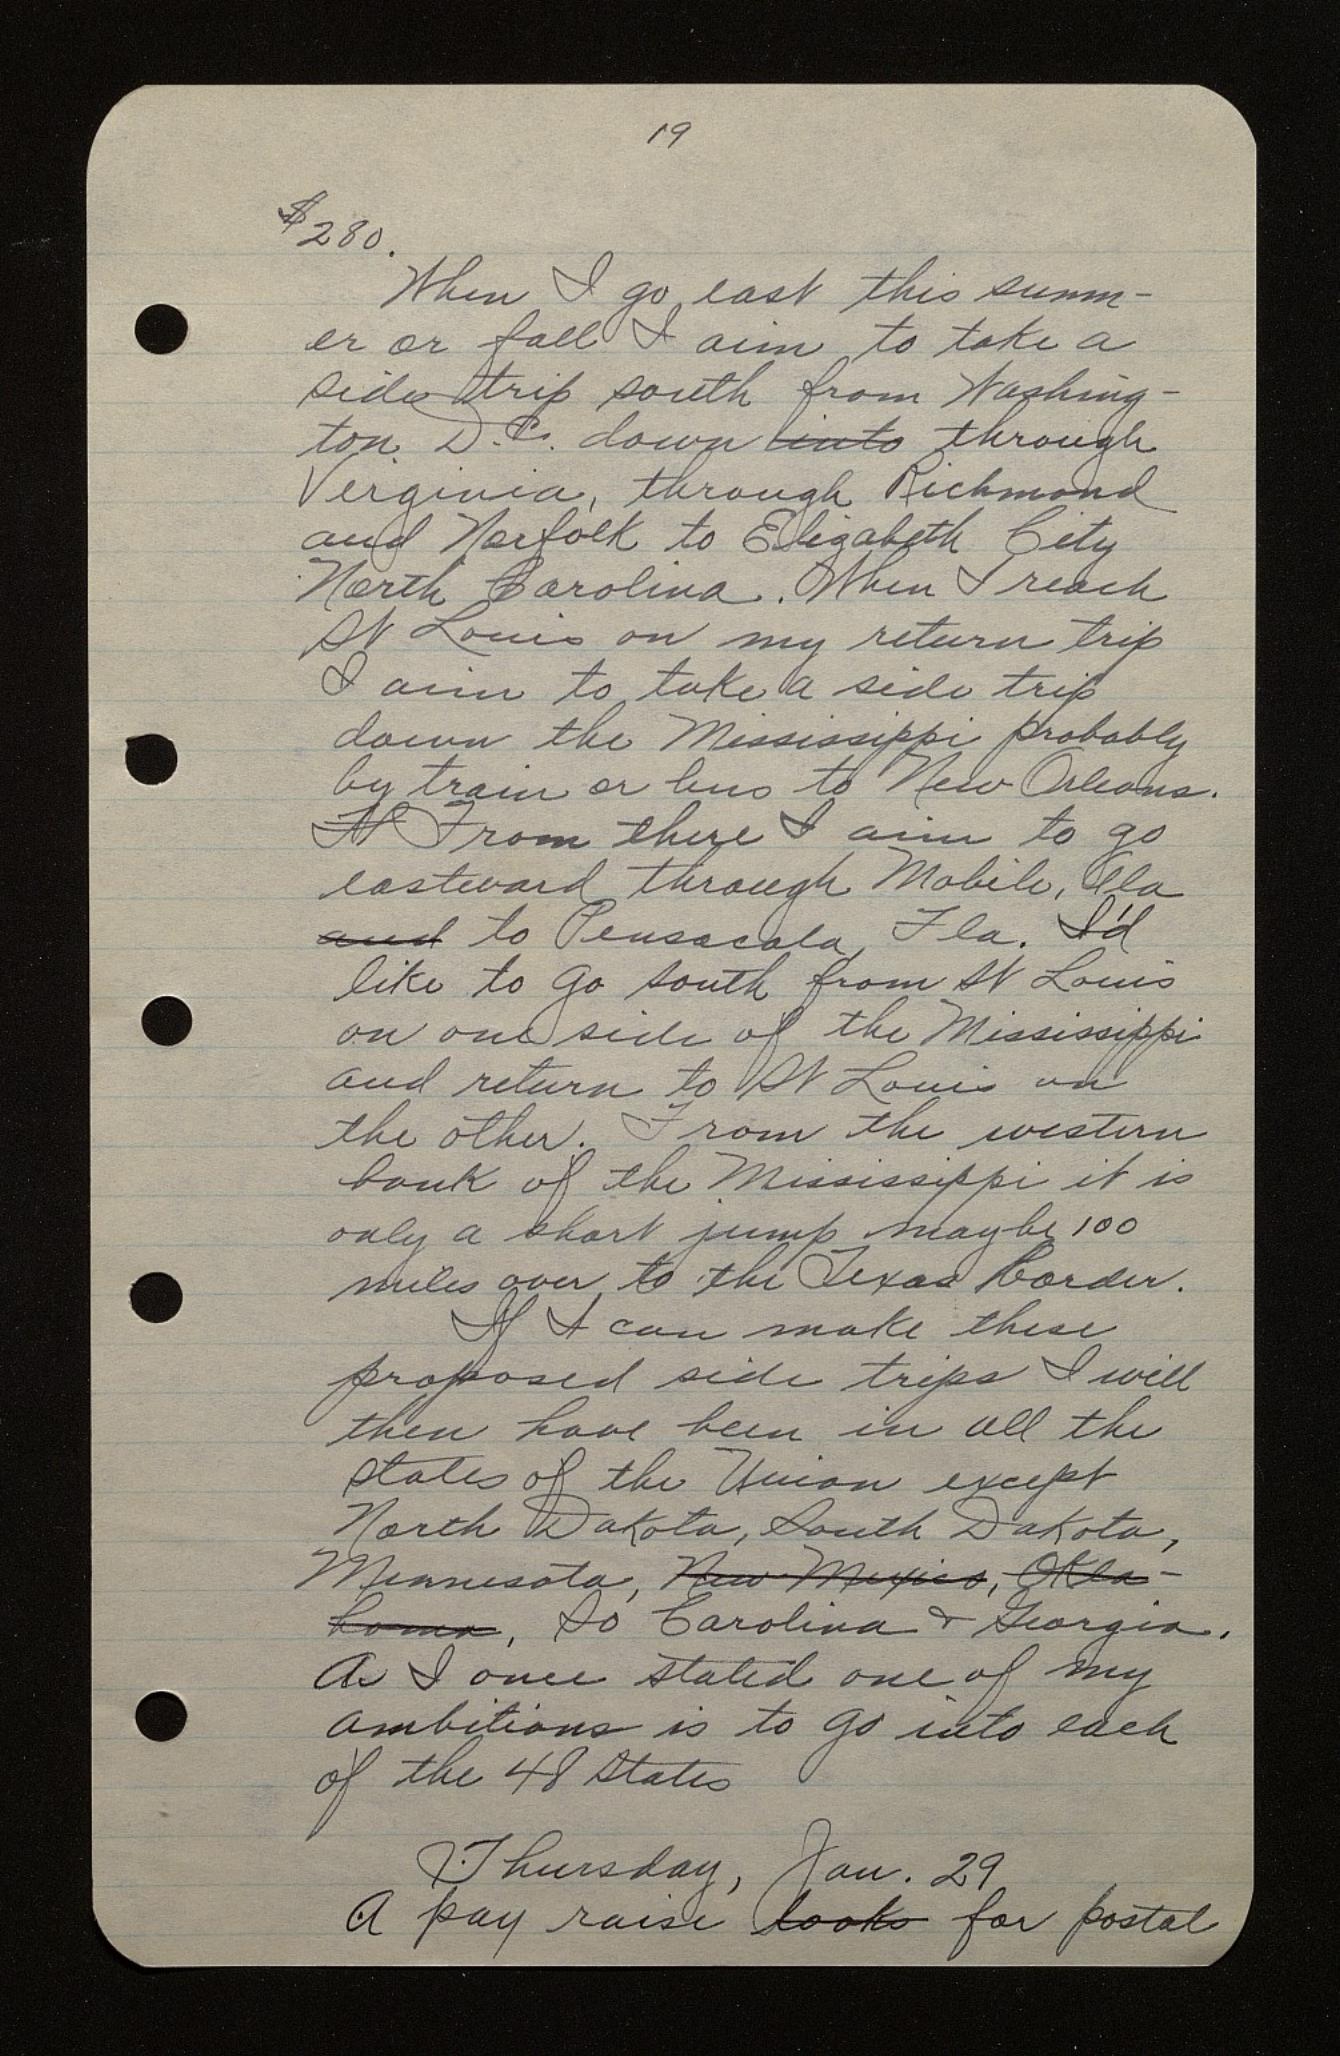 19
$280.
When I go east this summ-
er or fall I aim to take a
side trip south from Washing-
ton D.C. down into through
Verginia, through Richmond
and Norfolk to Elizabeth City
North Carolina. When I reach
St Louis on my return trip
I aim to take a side trip
down the Mississippi probably
by train or bus to New Orleans.
From there I aim to go
eastward through Mobile, Ala
and to Pensacola, Fla. I'd
like to go south from St Louis
on one side of the Mississippi
and return to St Louis on
the other. From the western
bank of the Mississippi it is
only a short jump maybe 100
miles over to the Texas Border.
If I can make these
proposed side trips I will
then have been in all the
states of the Union except
North Dakota, South Dakota,
Minnesota, New Mexico, Okla-
homa, So Carolina & Georgia.
As I once stated one of my
ambitions is to go into each
of the 48 States
Thursday, Jan. 29
A pay raise looks for postal